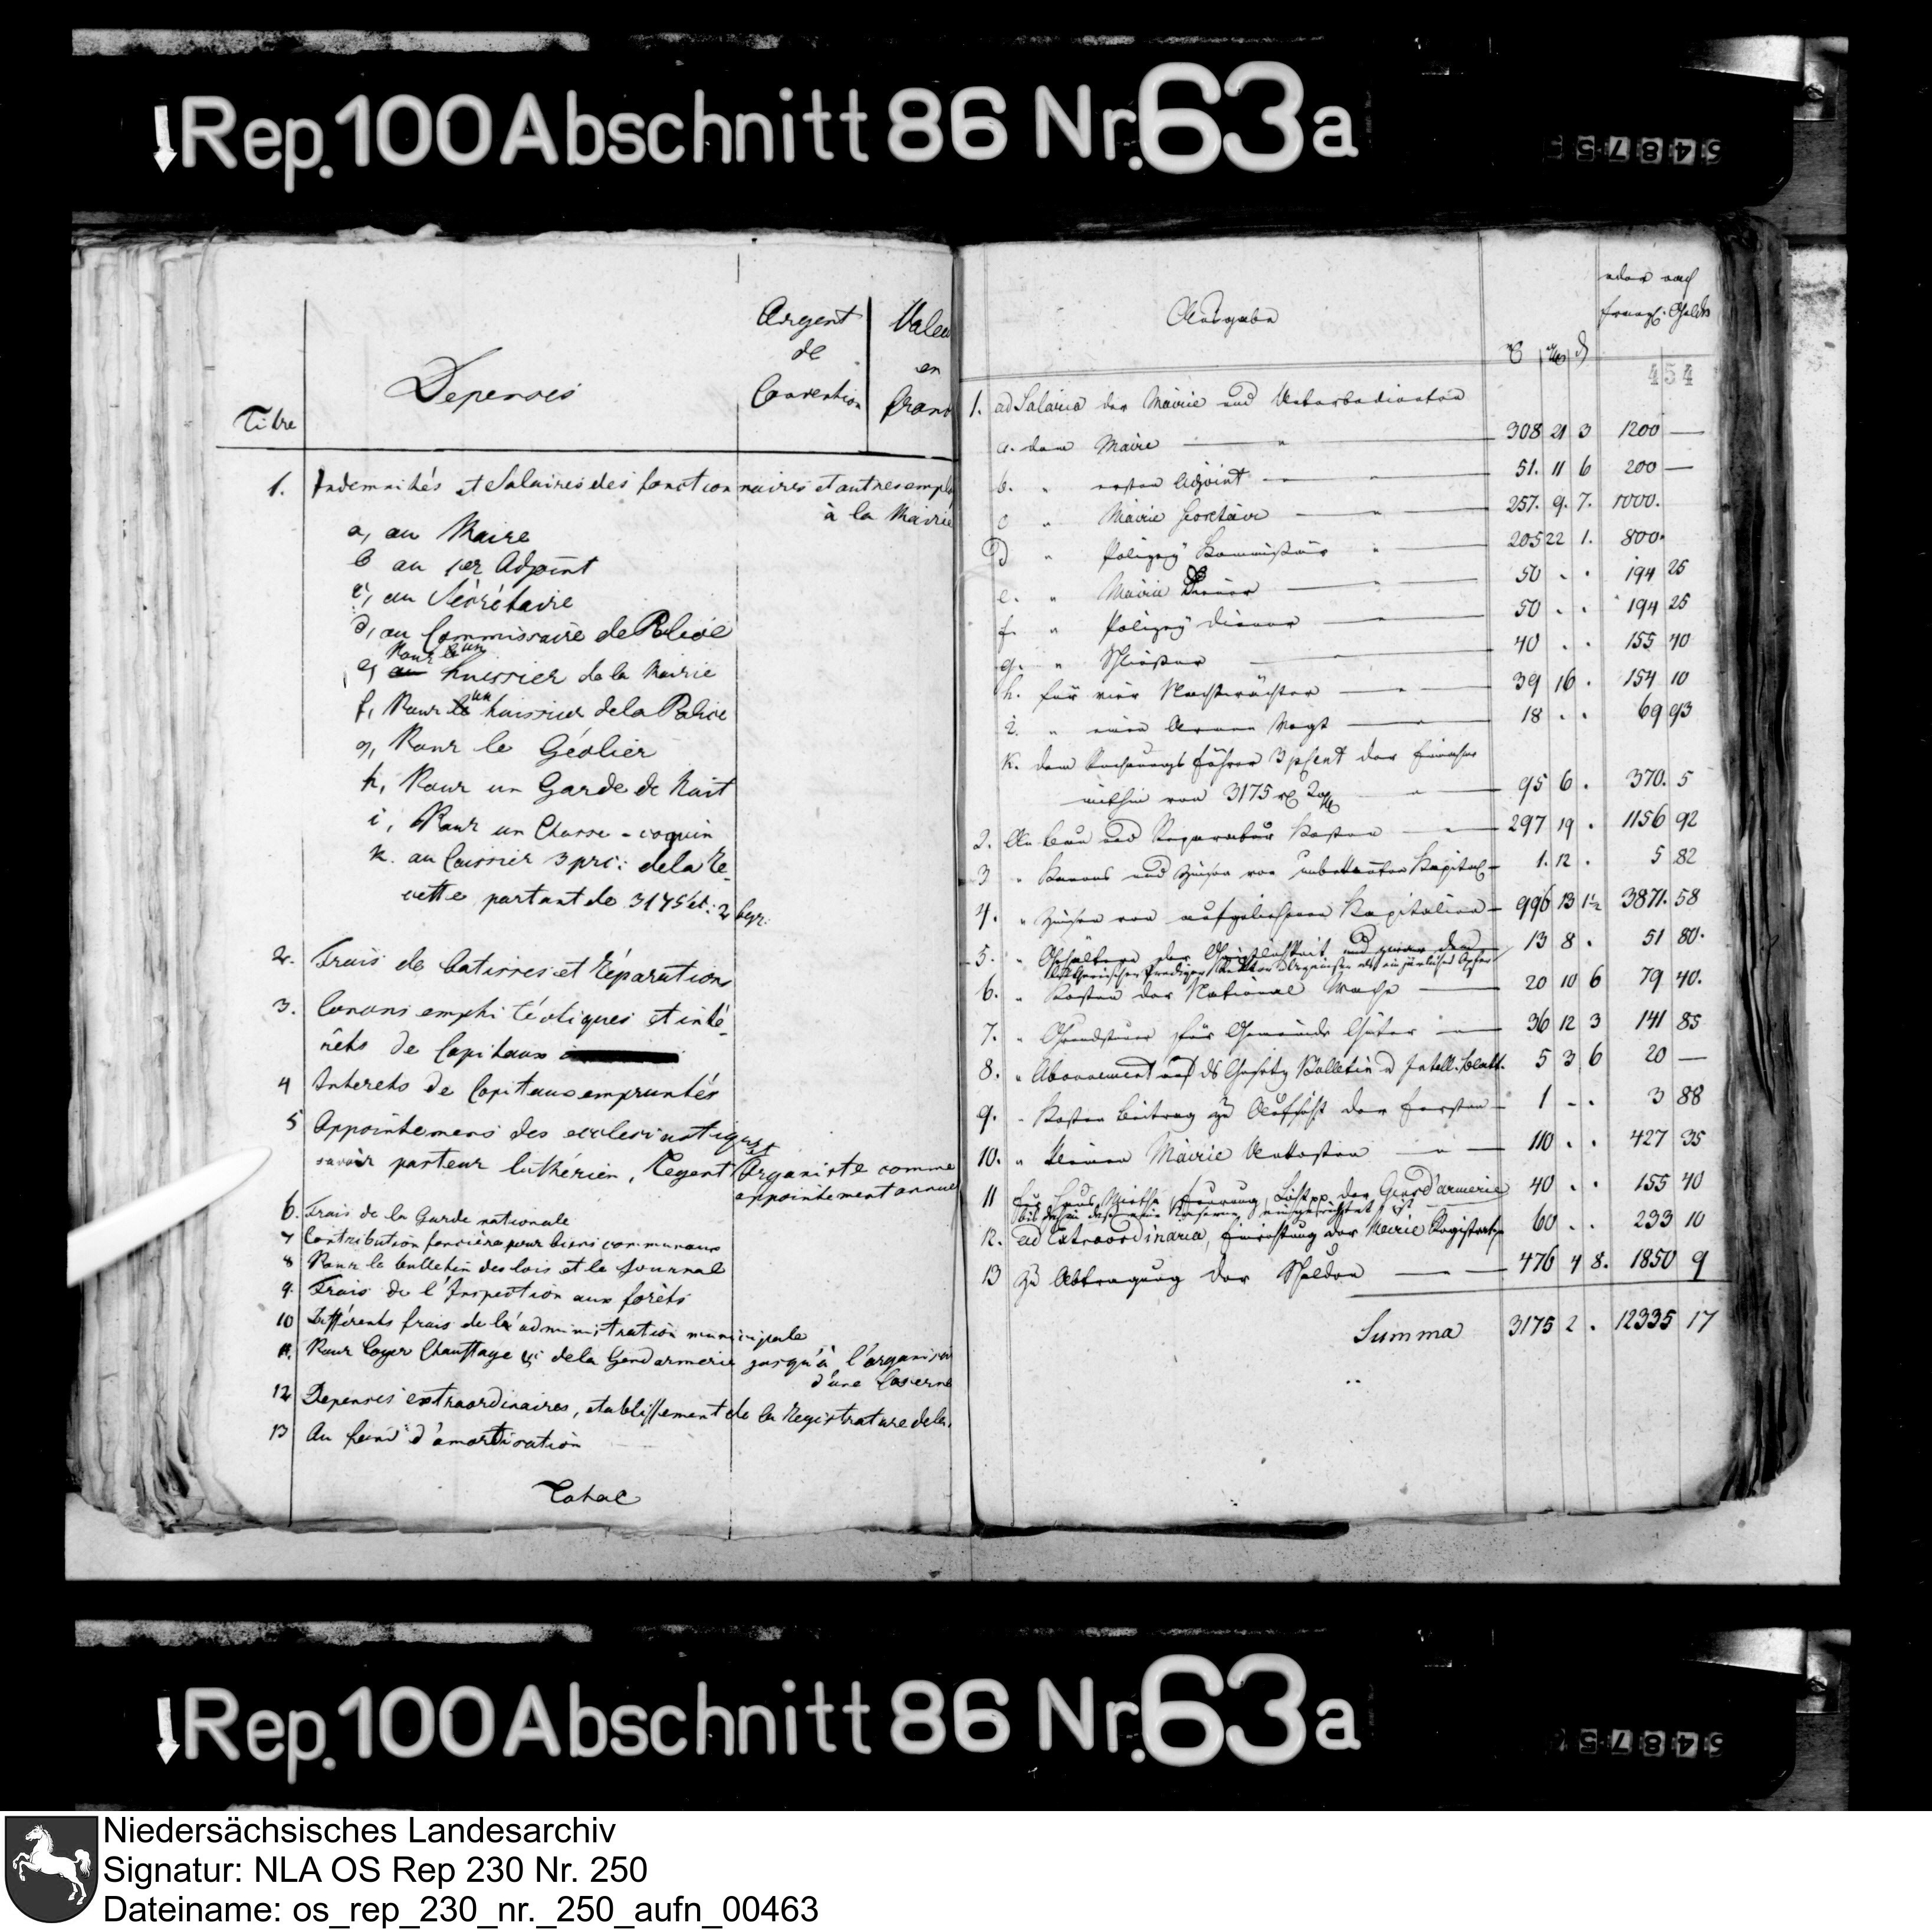 Rep. 100 Abschnitt 86 Nr. 63a
Titre
Depenses
Argent
de
Convention
Valeu
en
franc
1. Indemnités et Salaires des fonctionnaires et autres empl
à la Mairie
a, au Maire
b au 1er Adjoint
c, au Sécrétaire
d, au Commissaire de Police
Pour un
e, huissier de la Mairie
un
f, Pour le huissier de la Police
g, Pour le Géolier
h, Pour un Garde de Nuit
i, Pour un Chasse-coquin
k. au Caissier 3 prc: de la Re-
cette partant de 3175 et: 2
2. Frais de batisses et Réparations
3. Canons emphitéotiques et inté-
rêts de Capitaux
4 Interets de Capitaux empruntés
5 Appointemens des ecclesiastiques
savoir pasteur luthérien, Regent Organiste comme
appointement annuel
6. Frais de la Garde nationale
7 Contribution foncière pour biens communaux
8 Pour le bulletin des lois et le Journal
9. Frais de l'Inspection aux forêts
10 Différents frais de l'administration municipale
11. Pour Loyer Chauffage de la Gendarmerie jusqu'à l'organisa
d'une Caserne
12 Depenses extraordinaires, etablissement de la Registrature de la
13 Au fond d'amortisation
Total
Ausgabe
oder nach
französ. Gelde
454
1. ad Salaria der Mairie und Unterbedienten
a. dem Maire 308 21 3 1200 —
b. " ersten Adjoint 51. 11 6 200 —
c " Mairie Secretair 257. 9. 7. 1000.
d " Polizey Kommissair 205 22 1. 800.
e. " Mairie Diener 50 . . 194 25
f. " Polizey Diener 50 . . 194 25
g. " Schließer 40 . . 155 40
h. für vier Nachtwächter 39 16 . 154 10
i. " einen Armen Vogt 18 . . 69 93
k. dem Rechnungsführer 3 pCent der Einnahme
mithin von 3175 2 95 6 . 370. 5
2. An Bau und Reparatur Kosten 297 19 . 1156 92
3 " Canons und Zinsen von Kapital 1. 12 . 5 82
4. " Zinsen von aufgeliehenen Kapitalien 996 13 1½ 3871. 58
5. " Gehältern der Geistlichkeit und zwar dem 13 8 . 51 80.
Lutherischen Prediger Rektor Organisten als ein jährliches Opfer
6. " Kosten der National Wache 20 10 6 79 40.
7. " Grundsteuer für Gemeinde Güter 36 12 3 141 85
8. " Abonnement auf ds Gesetz Bülletin u Intell. blatt. 5 3 6 20 —
9. " Kosten Beitrag zu Aufsicht der Forsten 1 . . 3 88
10. " kleinen Mairie Unkosten 110 . . 427 35
11 Für Haus Miethe, Feurung, Licht pp. der Gensd'armerie 40 . . 155 40
bis dahin daß eine Kaserne eingerichtet ist
12. ad Extraordinaria, Einrichtung der Mairie Registratur 60 . . 233 10
13 Zu Abtragung der Schulden 476 4 8. 1850 9
Summa 3175 2 . 12335 17
Rep. 100 Abschnitt 86 Nr. 63a
Niedersächsisches Landesarchiv
Signatur: NLA OS Rep 230 Nr. 250
Dateiname: os_rep_230_nr._250_aufn_00463